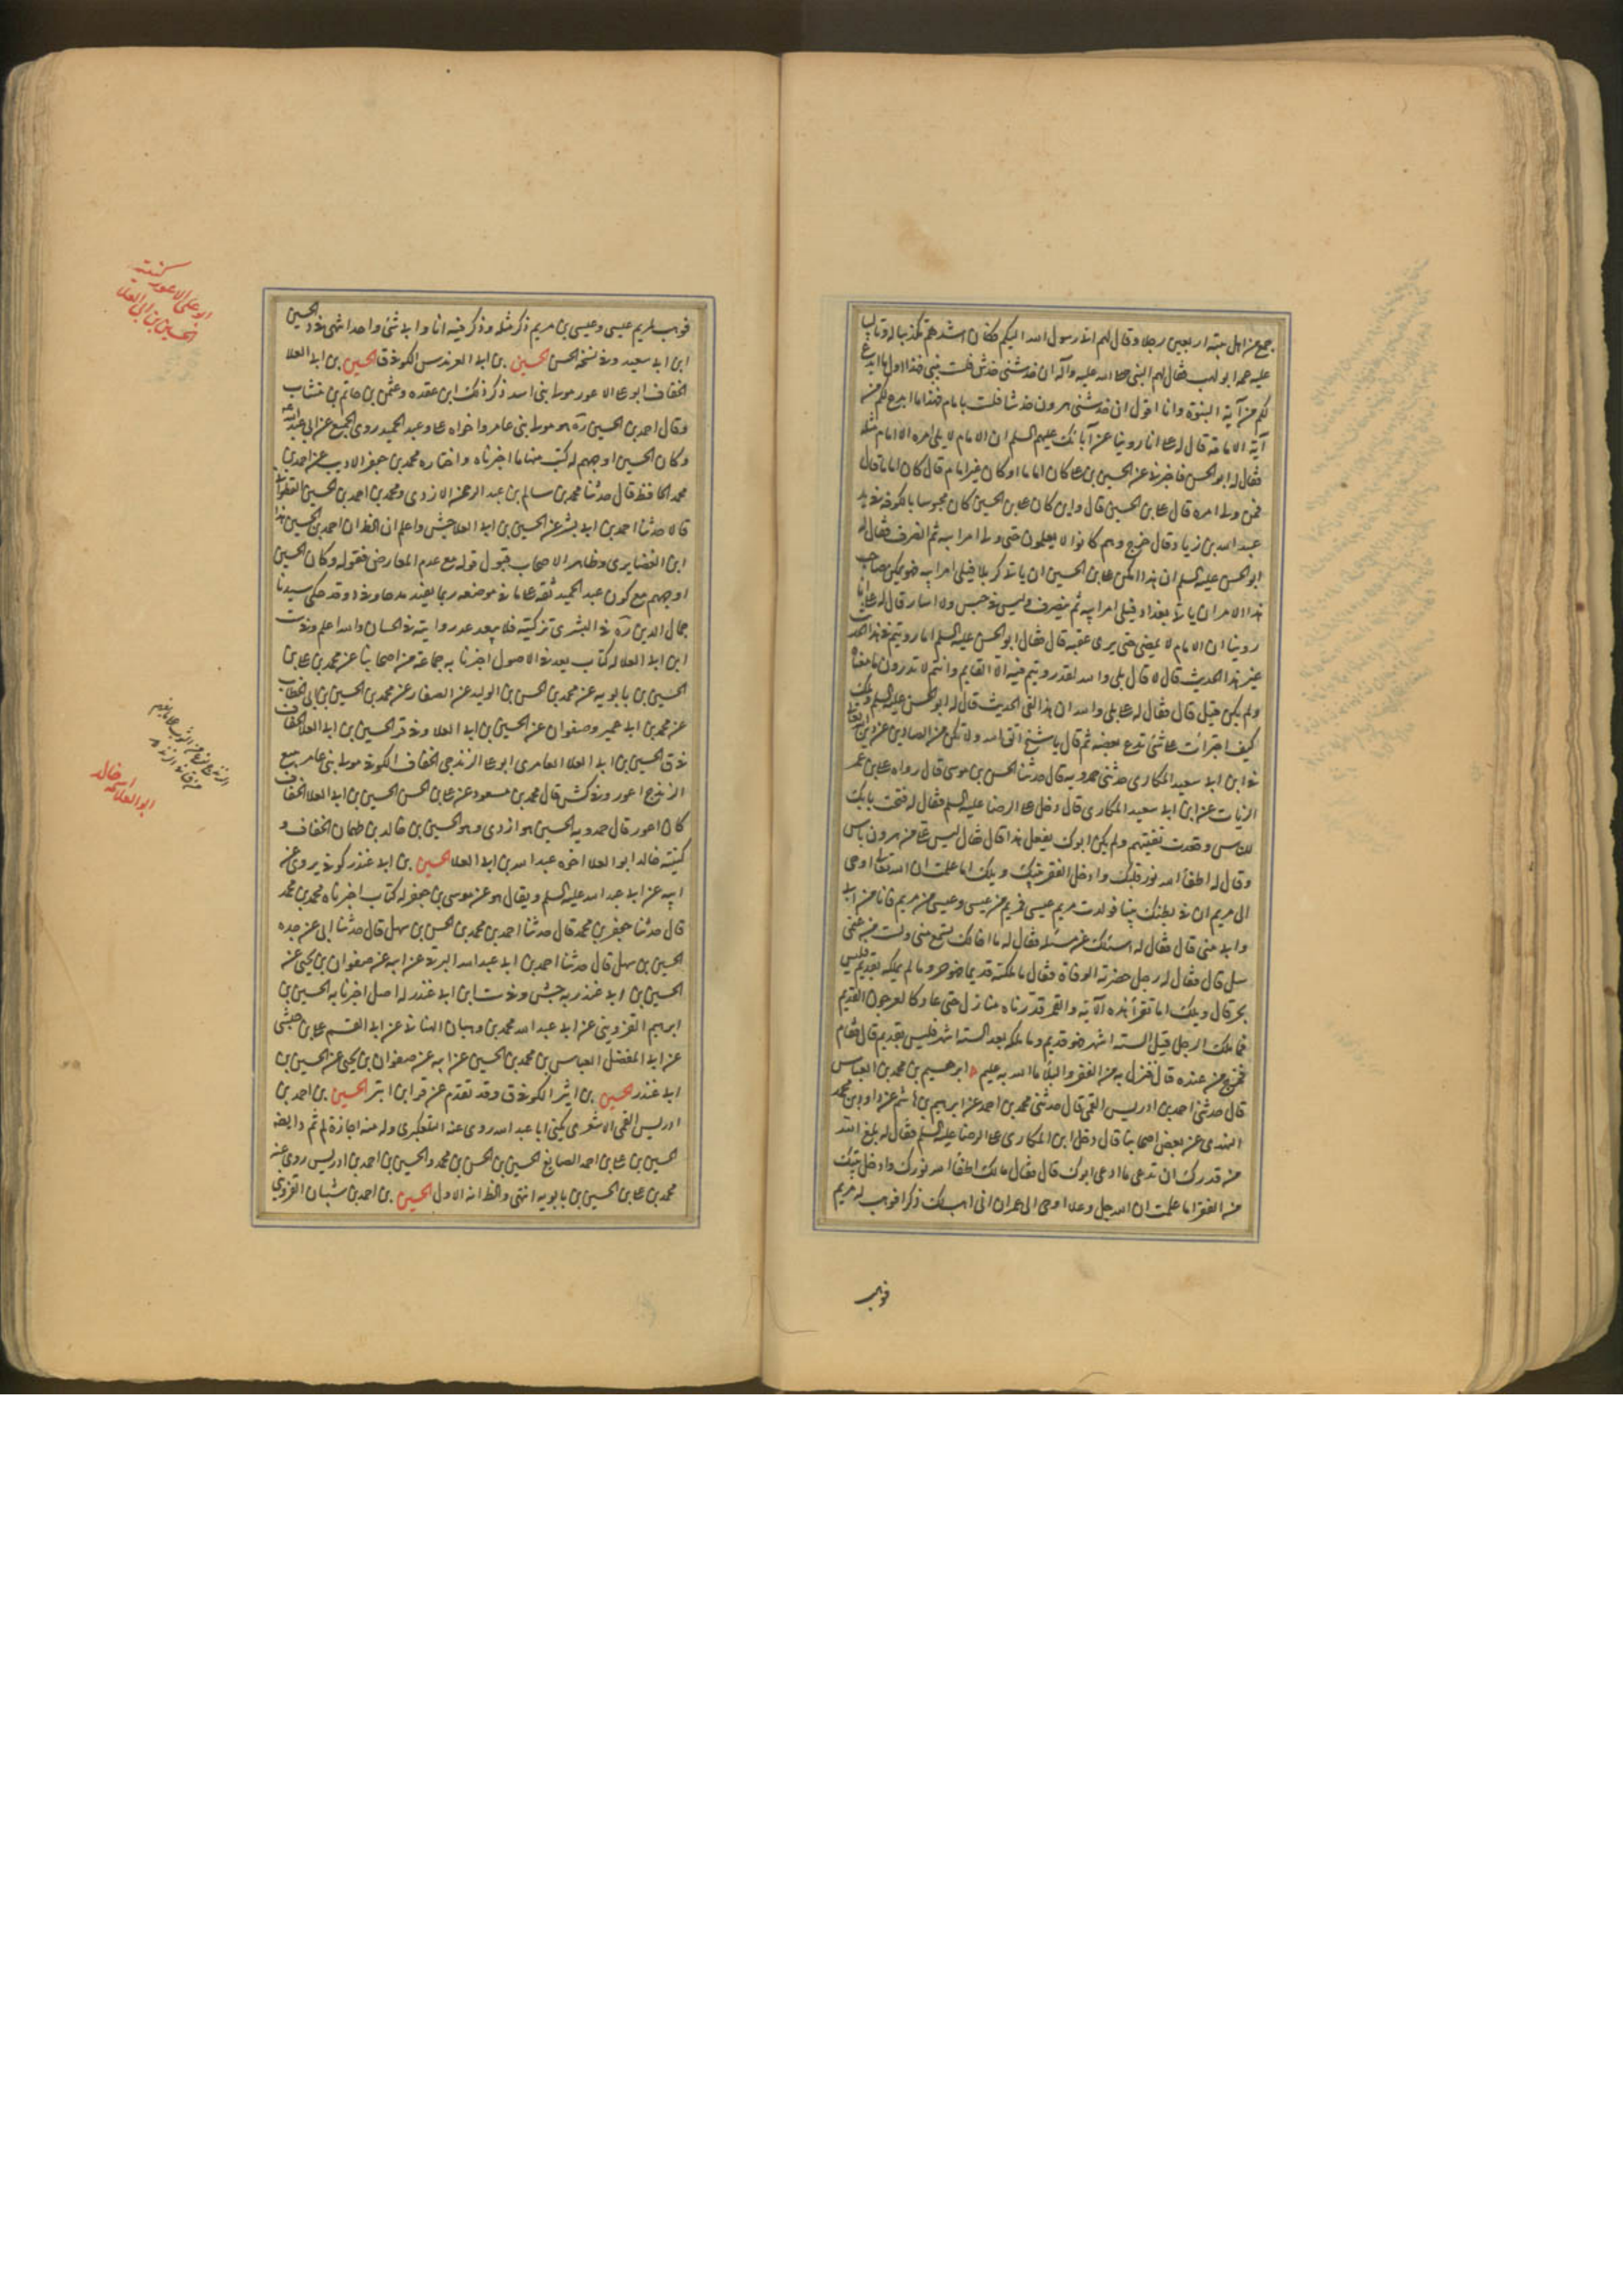 جمع من اهل بيته اربعين رجلا وقال لهم انى رسول الله اليكم فكان اشدهم تكذيبا له وتاليبا
عليه عمه ابو لهب فقال لهم النبى صلى الله عليه وآله ان خدشنى خدش فلست بنبى فهذا اول ما ابدع
لكم من آية النبوة وانا اقول ان خدشنى هرون خدشا فلست بامام فهذا ما ابدع لكم من
آية الامامة قال له على انا روينا عن آبائك عليهم السلم ان الامام لا يلى امره الا امام مثله
فقال له ابو الحسن فاخبرنى عن الحسين بن على كان اماما او كان غير امام قال كان اماما قال
فمن ولى امره قال على بن الحسين قال واين كان على بن الحسين كان محبوسا بالكوفة فى يد
عبيد الله بن زياد قال خرج وهم كانوا لا يعلمون حتى ولى امر ابيه ثم انصرف فقال له
ابو الحسن عليه السلم ان هذا امكن على بن الحسين ان ياتى كربلا فيلى امر ابيه فهو يمكن صاحب
هذا الامر ان ياتى بغداد فيلى امر ابيه ثم ينصرف وليس فى حبس ولا اسار قال له على انا
روينا ان الامام لا يمضى حتى يرى عقبه قال فقال ابو الحسن عليه السلم اما رويتم فى هذا الحديث
غير هذا الحديث قال لا قال بلى والله لقد رويتم فيه الا القايم وانتم لا تدرون ما معناه
ولم يكن قيل قال فقال له على بلى والله ان هذا لفى الحديث قال له ابو الحسن عليه السلم ويلك
كيف اجترأت على شئ تدع بعضه ثم قال يا شيخ اتق الله ولا تكن من الصادين عن دين الله تعالى
فى ابن ابى سعيد المكارى حدثنى حمدويه قال حدثنا الحسن بن موسى قال رواه على بن عمر
الزيات عن ابن ابى سعيد المكارى قال دخل على الرضا عليه السلم فقال له فتحت بابك
للناس وقعدت تفتيهم ولم يكن ابوك يفعل هذا قال فقال ليس على من هرون باس
وقال له اطفأ الله نور قلبك وادخل الفقر بيتك ويلك اما علمت ان الله تعالى اوحى
الى مريم ان فى بطنك نبيا فولدت مريم عيسى فمريم من عيسى وعيسى من مريم وانا من ابى
وابى منى قال فقال له اسئلك عن مسئلة فقال له ما اخالك تسمع منى ولست من غنمى
سل قال فقال له رجل حضرته الوفاة فقال ما ملكته قديما فهو حر وما لم يملكه بقديم فليس
بحر قال ويلك اما تقرأ هذه الآية والقمر قدرناه منازل حتى عاد كالعرجون القديم
فما ملك الرجل قبل الستة اشهر فهو قديم وما ملك بعد الستة اشهر فليس بقديم قال فقام
فخرج من عنده قال فنزل به من الفقر والبلاء ما الله به عليم ابرهيم بن محمد بن العباس
قال حدثنى احمد بن ادريس القمى قال حدثنى محمد بن احمد عن ابرهيم بن هاشم عن داود بن محمد
النهدى عن بعض اصحابنا قال دخل ابن المكارى على الرضا عليه السلم فقال له بلغ الله
من قدرك ان تدعى ما ادعى ابوك قال فقال مالك اطفأ الله نورك وادخل بيتك
من الفقر اما علمت ان الله جل وعلا اوحى الى عمران انى اهب لك ذكرا فوهب له مريم
فوهب
فوهب لمريم عيسى وعيسى بن مريم ذكر مثله وذكر فيه انا وابى شئ واحد انتهى وفى د الحسين
ابن ابى سعيد وفى نسخة الحسن الحسين بن ابى العرندس الكوفى ق الحسين بن ابى العلا
الخفاف ابو على الاعور مولى بنى اسد ذكر ذلك ابن عقده وعثمن بن حاتم بن منتاب
وقال احمد بن الحسين ره هو مولى بنى عامر واخواه على وعبد الحميد روى الجميع عن ابى عبد الله ع
وكان الحسين اوجههم له كتب منها ما اخبرناه واختاره محمد بن جعفر الاديب عن احمد بن
محمد الحافظ قال حدثنا محمد بن سالم بن عبد الرحمن الازدى ومحمد بن احمد بن الحسين القطوانى
قالا حدثنا احمد بن ابى بشر عن الحسين بن ابى العلا جش واعلم ان الظ ان احمد بن الحسين هذا
ابن الغضايرى وظاهر الاصحاب قبول قوله مع عدم المعارض فقوله وكان الحسين
اوجههم مع كون عبد الحميد ثقة على ما فى موضعه ربما يفيد مدحا وقد حكى سيدنا
جمال الدين ره فى البشرى تزكيته فلا يبعد عد روايته فى الحسان والله اعلم وفى ست
ابن ابى العلا له كتاب يعد فى الاصول اخبرنا به جماعة من اصحابنا عن محمد بن على بن
الحسين بن بابويه عن محمد بن الحسن بن الوليد عن الصفار عن محمد بن الحسين بن ابى الخطاب
عن محمد بن ابى عمير وصفوان عن الحسين بن ابى العلا وفى قر الحسين بن ابى العلا الخفاف
وفى ق الحسين بن ابى العلا العامرى ابو على الزندجى الخفاف الكوفى مولى بنى عامر يبيع
الزندج اعور وفى كش قال محمد بن مسعود عن على بن الحسن الحسين بن ابى العلا الخفاف
كان اعور قال حمدويه الحسين هو ازدى وهو الحسين بن خالد بن طهمان الخفاف و
كنيته خالد ابو العلا اخوه عبد الله بن ابى العلا الحسين بن ابى غندر كوفى يروى عن
ابيه عن ابى عبد الله عليه السلم ويقال هو عن موسى بن جعفر له كتاب اخبرناه محمد بن محمد
قال حدثنا جعفر بن محمد قال حدثنا احمد بن محمد بن الحسن بن سهل قال حدثنا ابى عن جده
الحسين بن سهل قال حدثنا احمد بن ابى عبد الله البرقى عن ابيه عن صفوان بن يحيى عن
الحسين بن ابى غندر به جش وفى ست ابن ابى غندر له اصل اخبرنا به الحسين بن
ابرهيم القزوينى عن ابى عبد الله محمد بن وهبان الهنائى عن ابى القسم على بن حبشى
عن ابى المفضل العباس بن محمد بن الحسين عن ابيه عن صفوان بن يحيى عن الحسين بن
ابى غندر الحسين بن اثير الكوفى ق وقد تقدم عن قر ابن ابتر الحسين بن احمد بن
ادريس القمى الاشعرى يكنى ابا عبد الله روى عنه التلعكبرى وله منه اجازة لم ثم وايضا
الحسين بن على بن احمد الصايغ الحسين بن الحسن بن محمد والحسين بن احمد بن ادريس روى عنه
محمد بن على بن الحسين بن بابويه انتهى والظ انه الاول الحسين بن احمد بن شيبان القزوينى
كنيته
ابو على الاعور
الحسين بن ابى العلا
اسمه خالد
ابو العلا